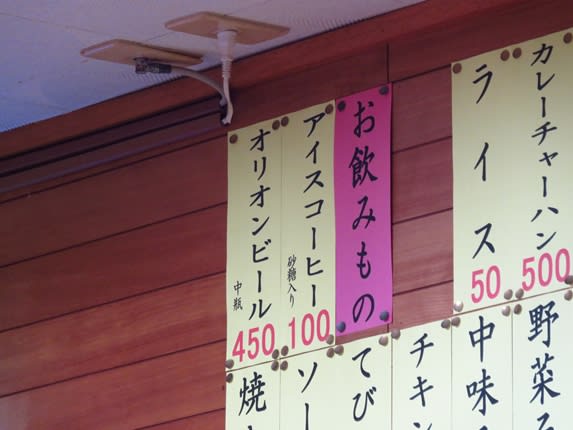 カレーチャーハン
500
ライス
50
お飲みもの
アイスコーヒー
砂糖入り
100
オリオンビール
中瓶
450
野菜
中味
チキン
てび
ソー
焼